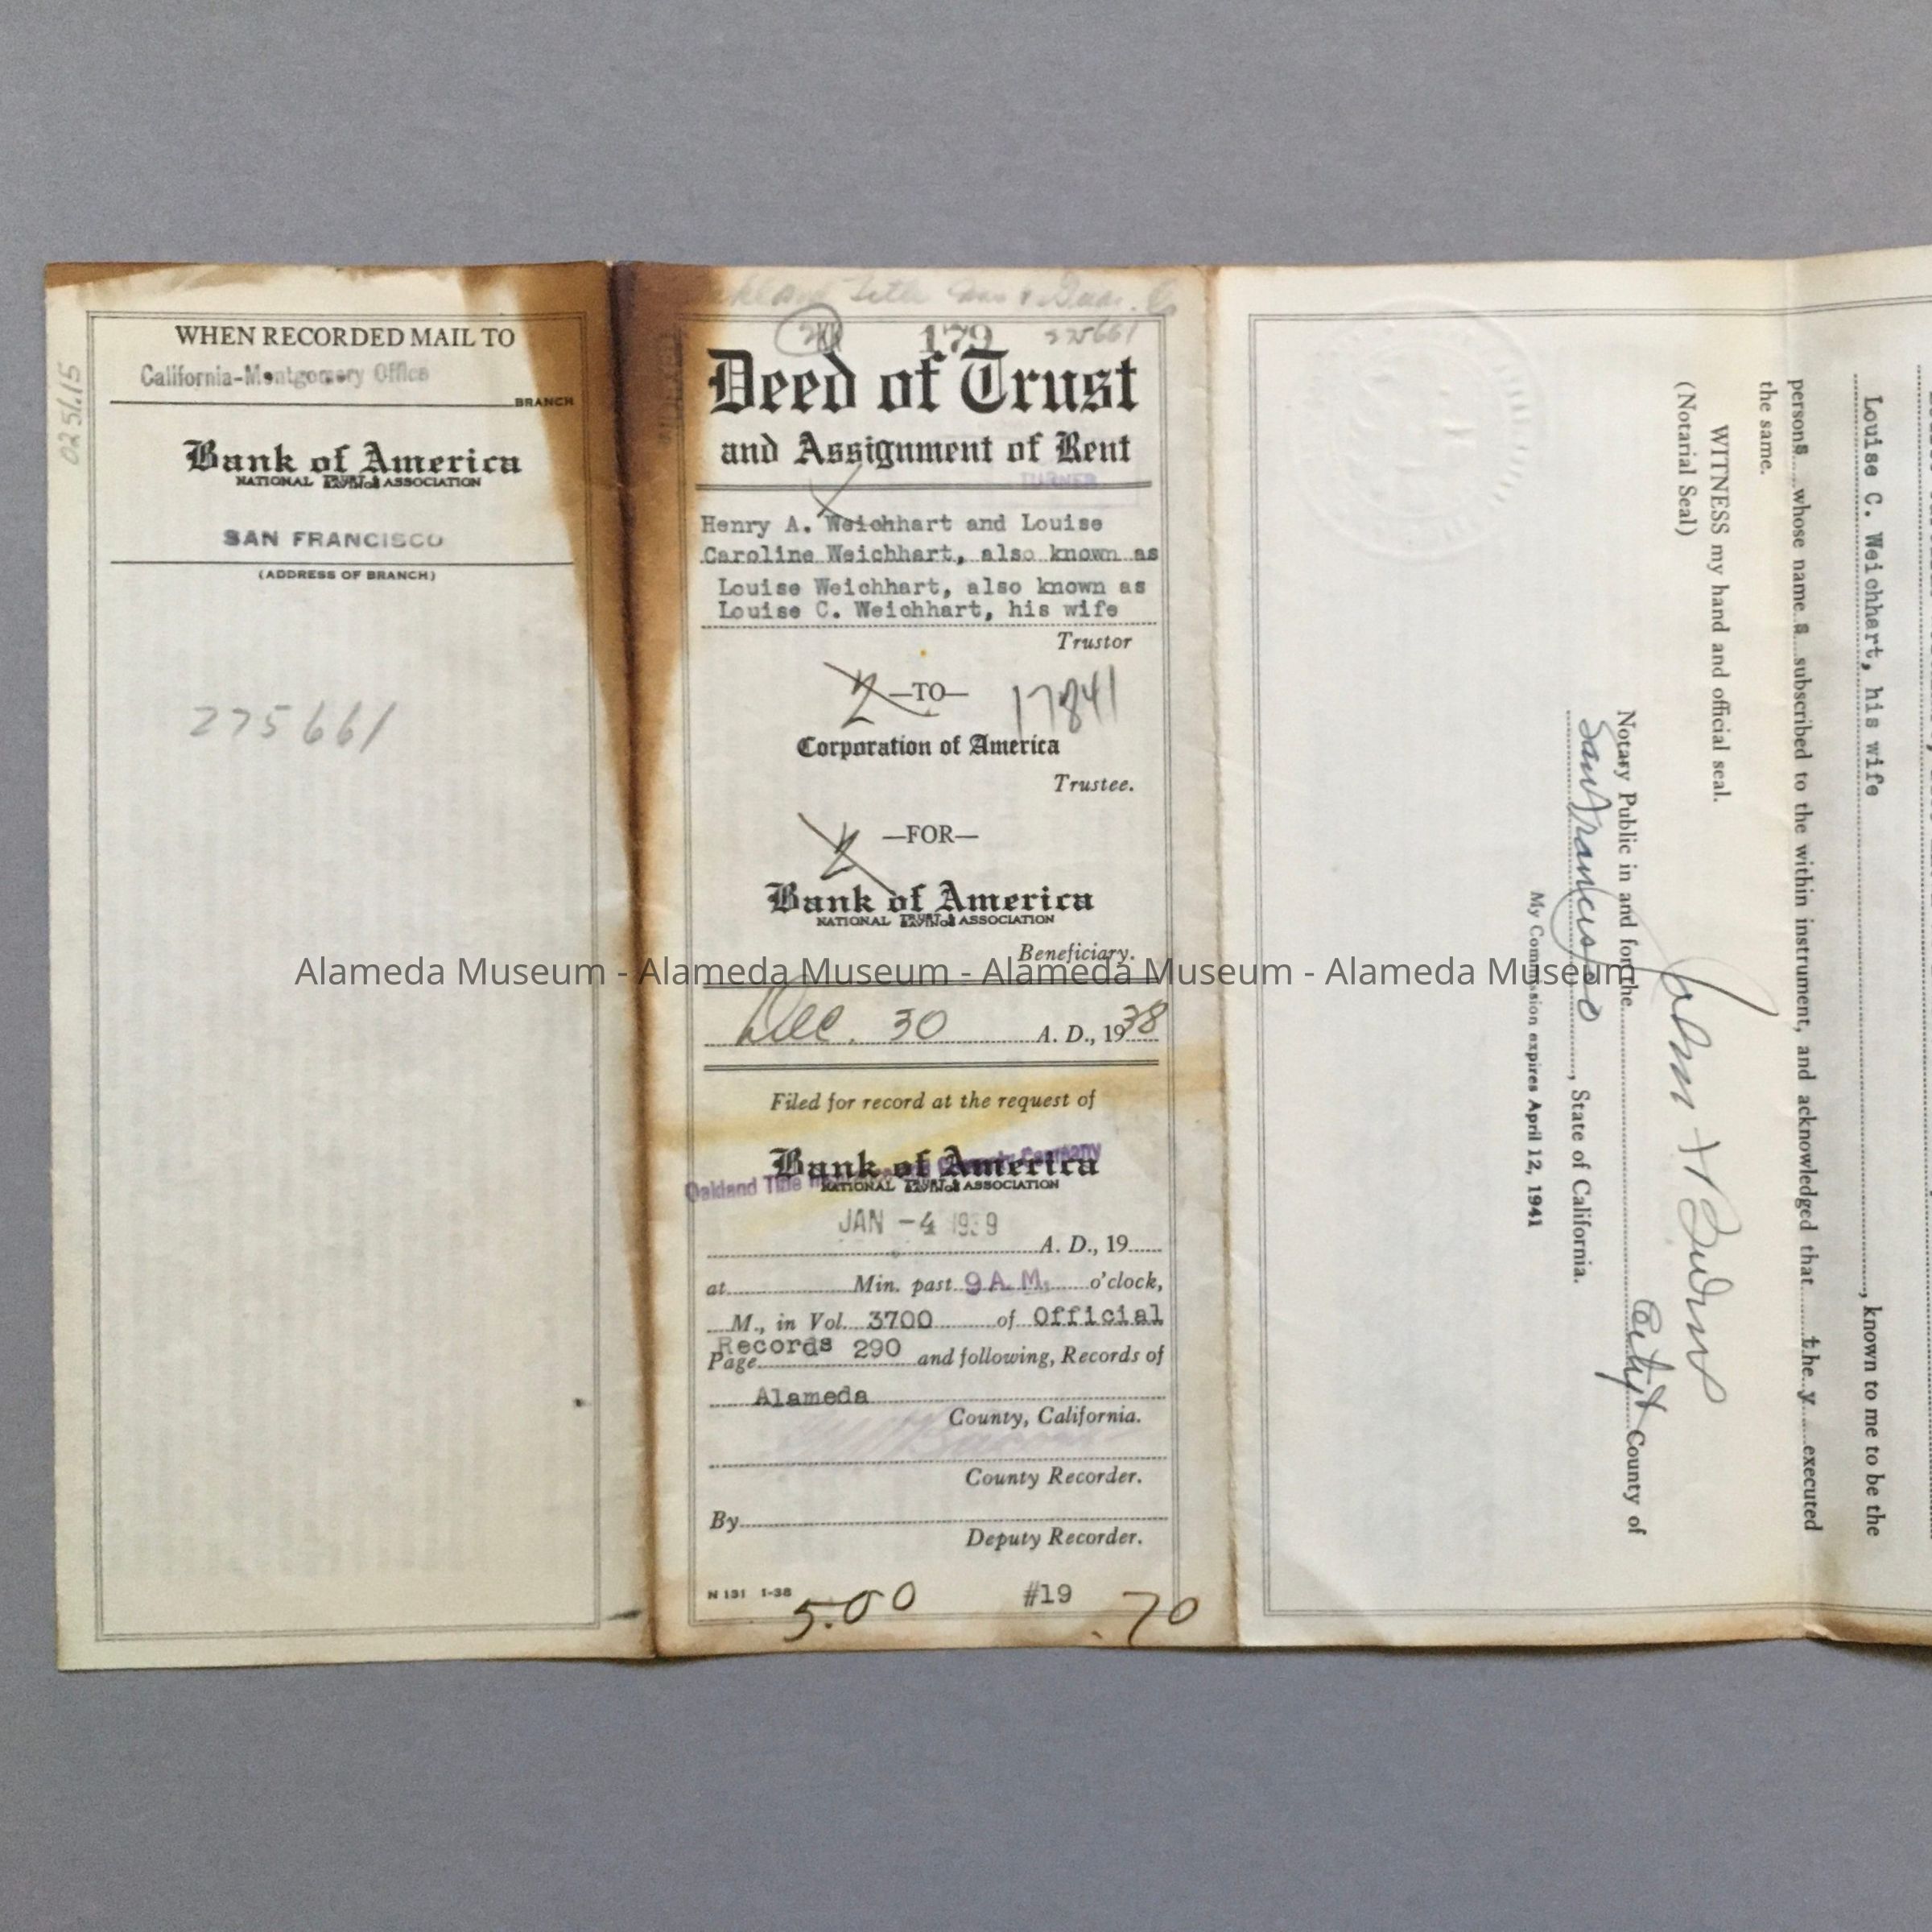 025615
WHEN RECORDED MAIL TO
California-Montgomery Office
BRANCH
Bank of America
NATIONAL TRUST & SAVINGS ASSOCIATION
SAN FRANCISCO
(ADDRESS OF BRANCH)
275661
Title
179 275661
Deed of Trust
and Assignment of Rent
TURNER
Henry A. Weichhart and Louise
Caroline Weichhart, also known as
Louise Weichhart, also known as
Louise C. Weichhart, his wife
Trustor
2 —TO— 17841
Corporation of America
Trustee.
2 —FOR—
Bank of America
NATIONAL TRUST & SAVINGS ASSOCIATION
Beneficiary.
Alameda Museum - Alameda Museum - Alameda Museum - Alameda Museum
Dec. 30 A. D., 1938
Filed for record at the request of
Bank of America
Oakland Title Company
NATIONAL TRUST & SAVINGS ASSOCIATION
JAN -4 1939
A. D., 19
at Min. past 9 A.M. o'clock,
M., in Vol. 3700 of Official
Records
Page 290 and following, Records of
Alameda
County, California.
County Recorder.
By
Deputy Recorder.
N 131 1-38 #19
5.00 .70
Louise C. Weichhart, his wife , known to me to be the
persons whose name s subscribed to the within instrument, and acknowledged that they executed
the same.
WITNESS my hand and official seal.
(Notarial Seal)
John
Notary Public in and for the City & County of
San Francisco, State of California.
My Commission expires April 12, 1941